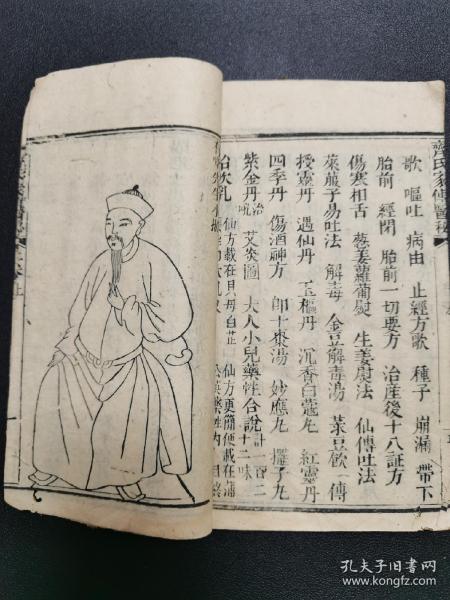 齊氏家傳醫秘
歌 嘔吐 病由 止經方歌 種子 崩漏 帶下
胎前 經閉 胎前一切要方 治産後十八証方
傷寒相舌 葱姜蘿蔔熨 生姜熨法 仙傳吐法
萊菔子易吐法 解毒 金豆解毒湯 菉豆飲 傳
授靈丹 遇仙丹 玉樞丹 沉香白蔻丸 紅靈丹
四季丹 傷酒神方 郎十棗湯 妙應丸 攞子丸
紫金丹 治吼 艾灸圖 大人小兒藥性合說計一百二十二味
治吹乳 仙方載在貝母白芷 仙方更簡便載在蒲
孔夫子旧书网
www.kongfz.com